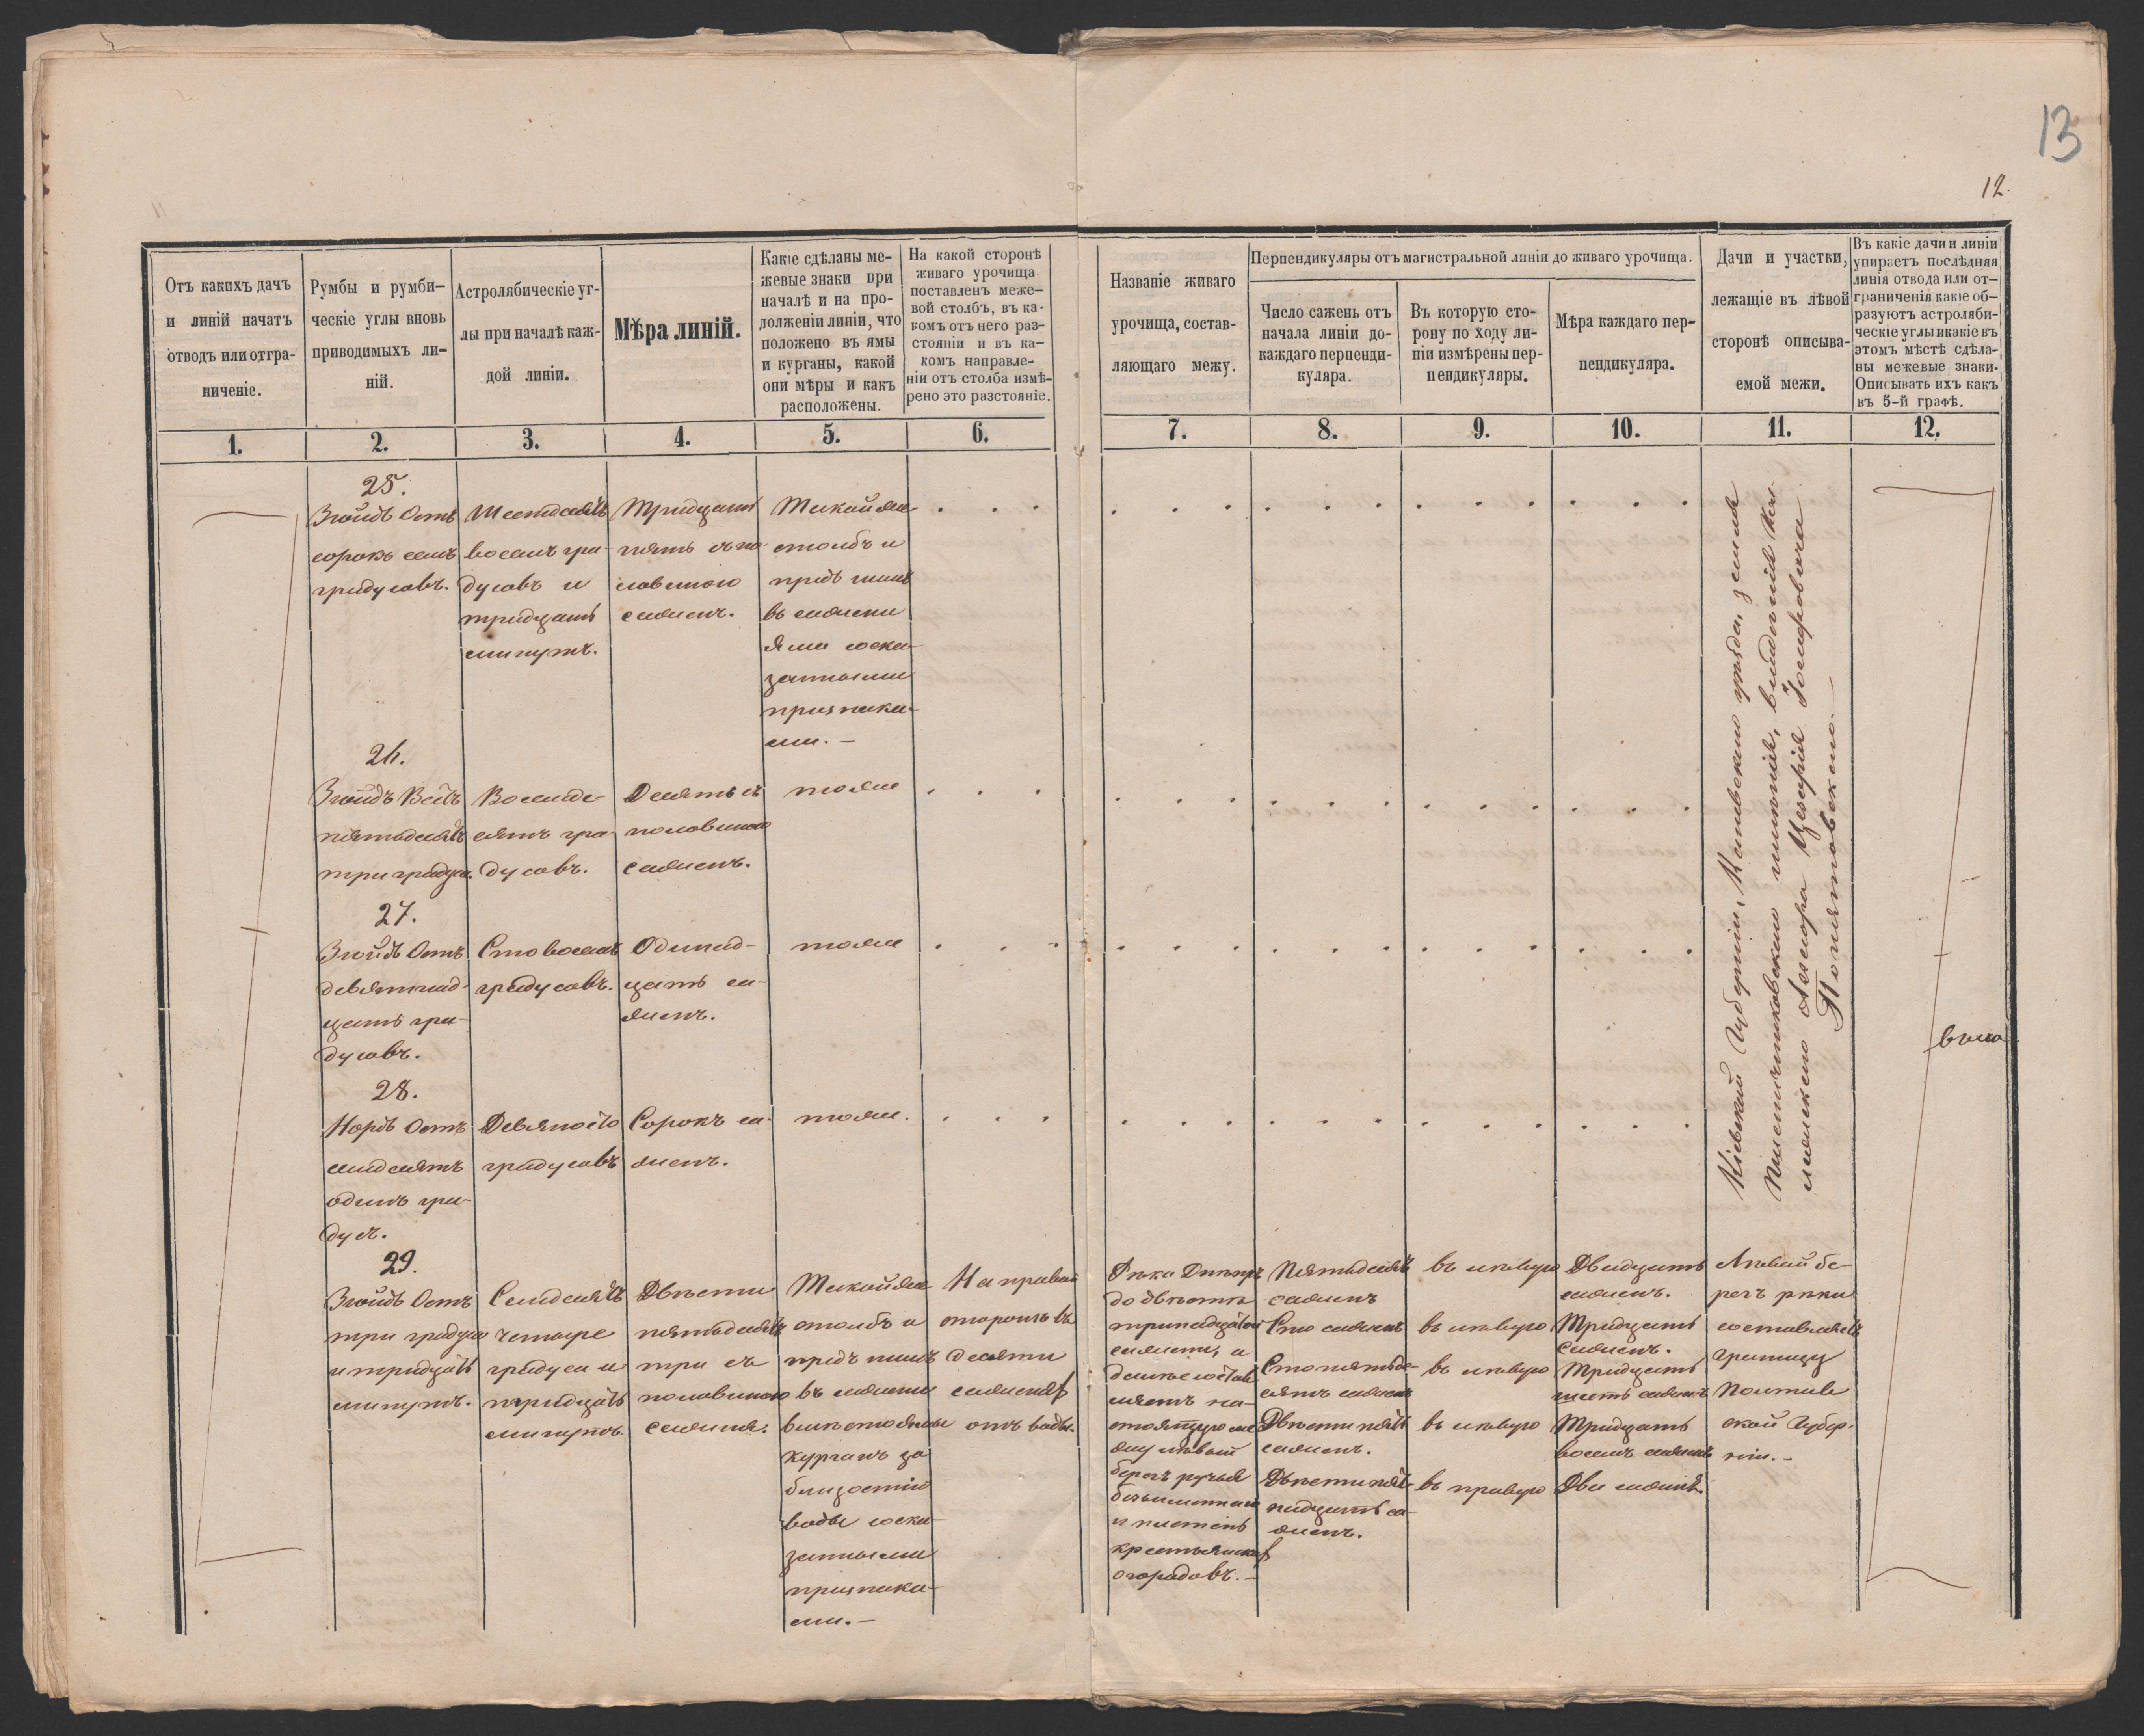 13
12.
Отъ какихъ дачъ
и линій начатъ
отводъ или отгра-
ниченіе.
Румбы и румби-
ческіе углы вновь
приводимыхъ ли-
ній.
Астролябическіе уг-
лы при началѣ каж-
дой линіи.
Мѣра линій.
Какіе сдѣланы ме-
жевые знаки при
началѣ и на про-
долженіи линіи, что
положено въ ямы
и курганы, какой
они мѣры и какъ
расположены.
На какой сторонѣ
живаго урочища
поставленъ меже-
вой столбъ, въ ка-
комъ отъ него раз-
стояніи и въ ка-
комъ направле-
ніи отъ столба измѣ-
рено это разстояніе.
Названіе живаго
урочища, состав-
ляющаго межу.
Перпендикуляры отъ магистральной линіи до живаго урочища.
Число сажень отъ
начала линіи до
каждаго перпенди-
куляра.
Въ которую сто-
рону по ходу ли-
ніи измѣрены пер-
пендикуляры.
Мѣра каждаго пер-
пендикуляра.
Дачи и участки,
лежащіе въ лѣвой
сторонѣ описыва-
емой межи.
Въ какіе дачи и линіи
упираетъ послѣдняя
линія отвода или от-
граниченія какіе об-
разуютъ астроляби-
ческіе углы и какіе въ
этомъ мѣстѣ сдѣла-
ны межевые знаки.
Описывать ихъ какъ
въ 5-й графѣ.
1. 2. 3. 4. 5. 6. 7. 8. 9. 10. 11. 12.
25.
Зюйдъ Остъ
сорокъ семь
градусовъ.
Шестдесятъ
восемь гра-
дусовъ и
тридцать
минутъ.
Тридцать
пять съ по-
ловиною
сажень.
Такой же
столбъ и
предъ нимъ
въ сажени
яма со ска-
занными
признака-
ми. —
26.
Зюйдъ Вестъ
пятьдесятъ
три градуса.
Восемде-
сятъ гра-
дусовъ.
Десять съ
половиною
сажень.
тоже
27.
Зюйдъ Остъ
девятнад-
цать гра-
дусовъ.
Сто восемь
градусовъ.
Одинад-
цать са-
жень.
тоже
28.
Нордъ Остъ
семдесятъ
одинъ гра-
дусъ.
Девяносто
градусовъ
Сорокъ са-
жень.
тоже.
29.
Зюйдъ Остъ
три градуса
и тридцать
минутъ.
Семдесятъ
четыре
градуса и
тридцать
минутъ.
Двѣсти
пятьдесятъ
три съ
половиною
сажень.
Такой же
столбъ и
предъ нимъ
въ сажени
вмѣсто ямы
курганъ за
близостію
воды со ска-
занными
признака-
ми. —
На правой
сторонѣ въ
десяти
саженяхъ
отъ воды.
Рѣка Днѣпръ
до двѣсти
тринадцатой
сажени, а
далѣе состав-
ляетъ на-
стоящую ме-
жу лѣвый
берегъ ручья
безъименнаго
и плетень
крестьянскихъ
огородовъ. —
Пятьдесятъ
сажень
Сто сажень
Сто пятьде-
сятъ сажень
Двѣсти пять
сажень.
Двѣсти пят-
надцать са-
жень.
въ лѣвую
въ лѣвую
въ лѣвую
въ лѣвую
въ правую
Двадцать
сажень.
Тридцать
сажень.
Тридцать
шесть сажень
Тридцать
восемь сажень
Две сажени.
Кіевской Губерніи, Каневскаго уѣзда, земля
Пшеничниковскаго имѣнія, владѣнія Кол-
лежскаго Асесора Цезарія Іосифовича
Понятовскаго. —
Лѣвый бе-
регъ рѣки
составляетъ
границу
Полтав-
ской Губер-
ніи. —